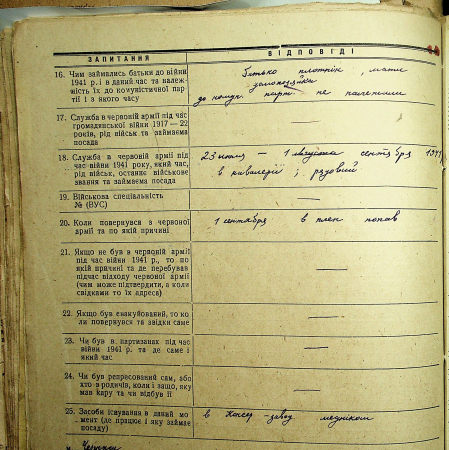 ЗАПИТАННЯ ВІДПОВІДІ
16. Чим займались батьки до війни
1941 р. і в даний час та належ-
ність їх до комуністичної пар-
тії і з якого часу
Батько плотнік, мати
домохозяйка
до комун. парт. не належали
17. Служба в червоній армії під час
громадянської війни 1917—22
років, рід військ та займаєма
посада
—
18. Служба в червоній армії під
час війни 1941 року, який час,
рід військ, останнє військове
звання та займаєма посада
23 — 1 сентября 1941
в кавалерії, рядовий
19. Військова спеціальність
№ (ВУС)
—
20. Коли повернувся з червоної
армії та по якій причині
1 сентября в плен попав
21. Якщо не був в червоній армії
під час війни 1941 р., то по
якій причині та де перебував
підчас відходу червоної армії
(чим може підтвердити, а коли
свідками то їх адреса)
—
22. Якщо був евакуйований, то ко-
ли повернувся та звідки саме
—
23. Чи був в партизанах під час
війни 1941 р. та де саме і
який час
—
24. Чи був репресований сам, або
хто з родичів, коли і защо, яку
мав кару та чи відбув її
—
25. Засоби існування в даний мо-
мент (де працює і яку займає
посаду)
в завод медніком